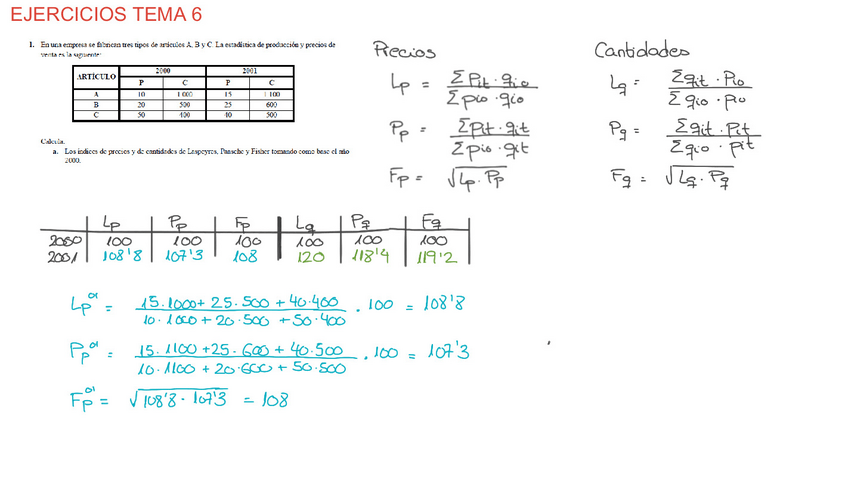 EJERCICIOS TEMA 6
1. En una empresa se fabrican tres tipos de artículos A, B y C. La estadística de producción y precios de
venta es la siguiente:
ARTÍCULO 2000 2001
P C P C
A 10 1 000 15 1 100
B 20 500 25 600
C 50 400 40 500
Calcula:
a. Los índices de precios y de cantidades de Laspeyres, Paasche y Fisher tomando como base el año
2000.
Precios
Lp = Σ Pit · qio / Σ pio · qio
Pp = Σ Pit · qit / Σ pio · qit
Fp = √Lp · Pp
Cantidades
Lq = Σ qit · Pio / Σ qio · Pio
Pq = Σ qit · Pit / Σ qio · Pit
Fq = √Lq · Pq
Lp Pp Fp Lq Pq Fq
2000 100 100 100 100 100 100
2001 108'8 107'3 108 120 118'4 119'2
Lp⁰¹ = 15·1000 + 25·500 + 40·400 / 10·1000 + 20·500 + 50·400 · 100 = 108'8
Pp⁰¹ = 15·1100 + 25·600 + 40·500 / 10·1100 + 20·600 + 50·500 · 100 = 107'3
Fp⁰¹ = √108'8 · 107'3 = 108